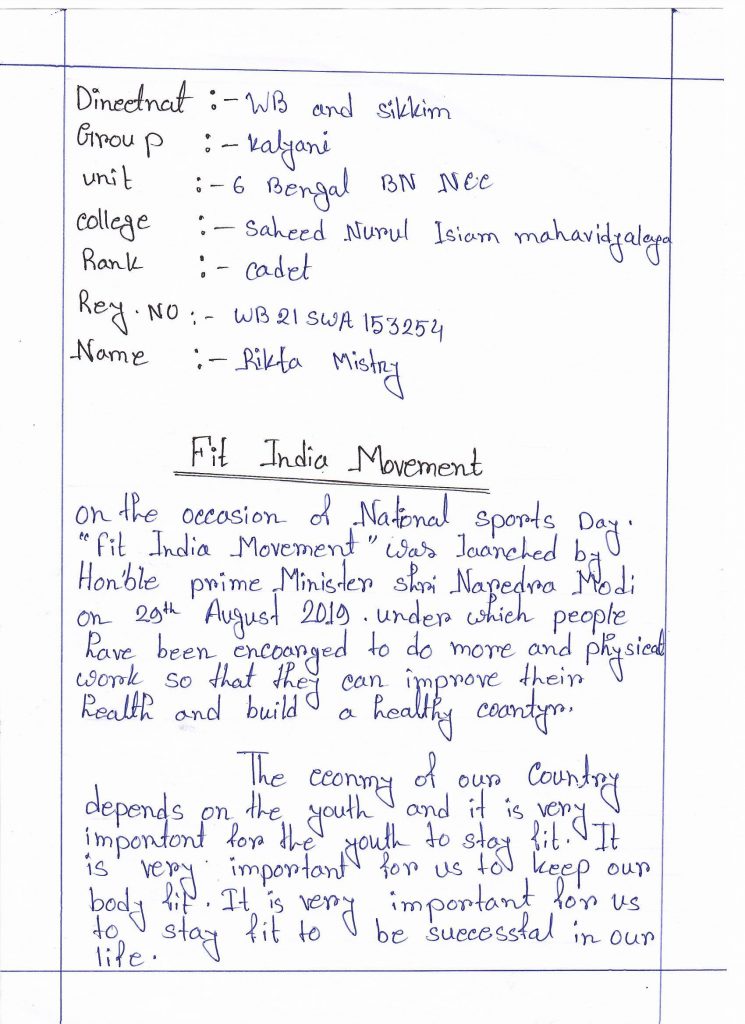 Directnat :- WB and sikkim
Group :- kalyani
unit :- 6 Bengal BN NCC
college :- Saheed Nurul Isiam mahavidyalaya
Rank :- cadet
Rey. NO :- WB 21 SWA 153254
Name :- Rikta Mistry
Fit India Movement
on the occasion of National sports Day.
"fit India Movement" was laanched by
Hon'ble prime Minister shri Naredra Modi
on 29th August 2019. under which people
have been encoanged to do more and physical
work so that they can improve their
health and build a healthy coantyr.
The econmy of our Country
depends on the youth and it is very
impontont for the youth to stay fit. It
is very important for us to keep our
body fit. It is very important for us
to stay fit to be successfal in our
life.